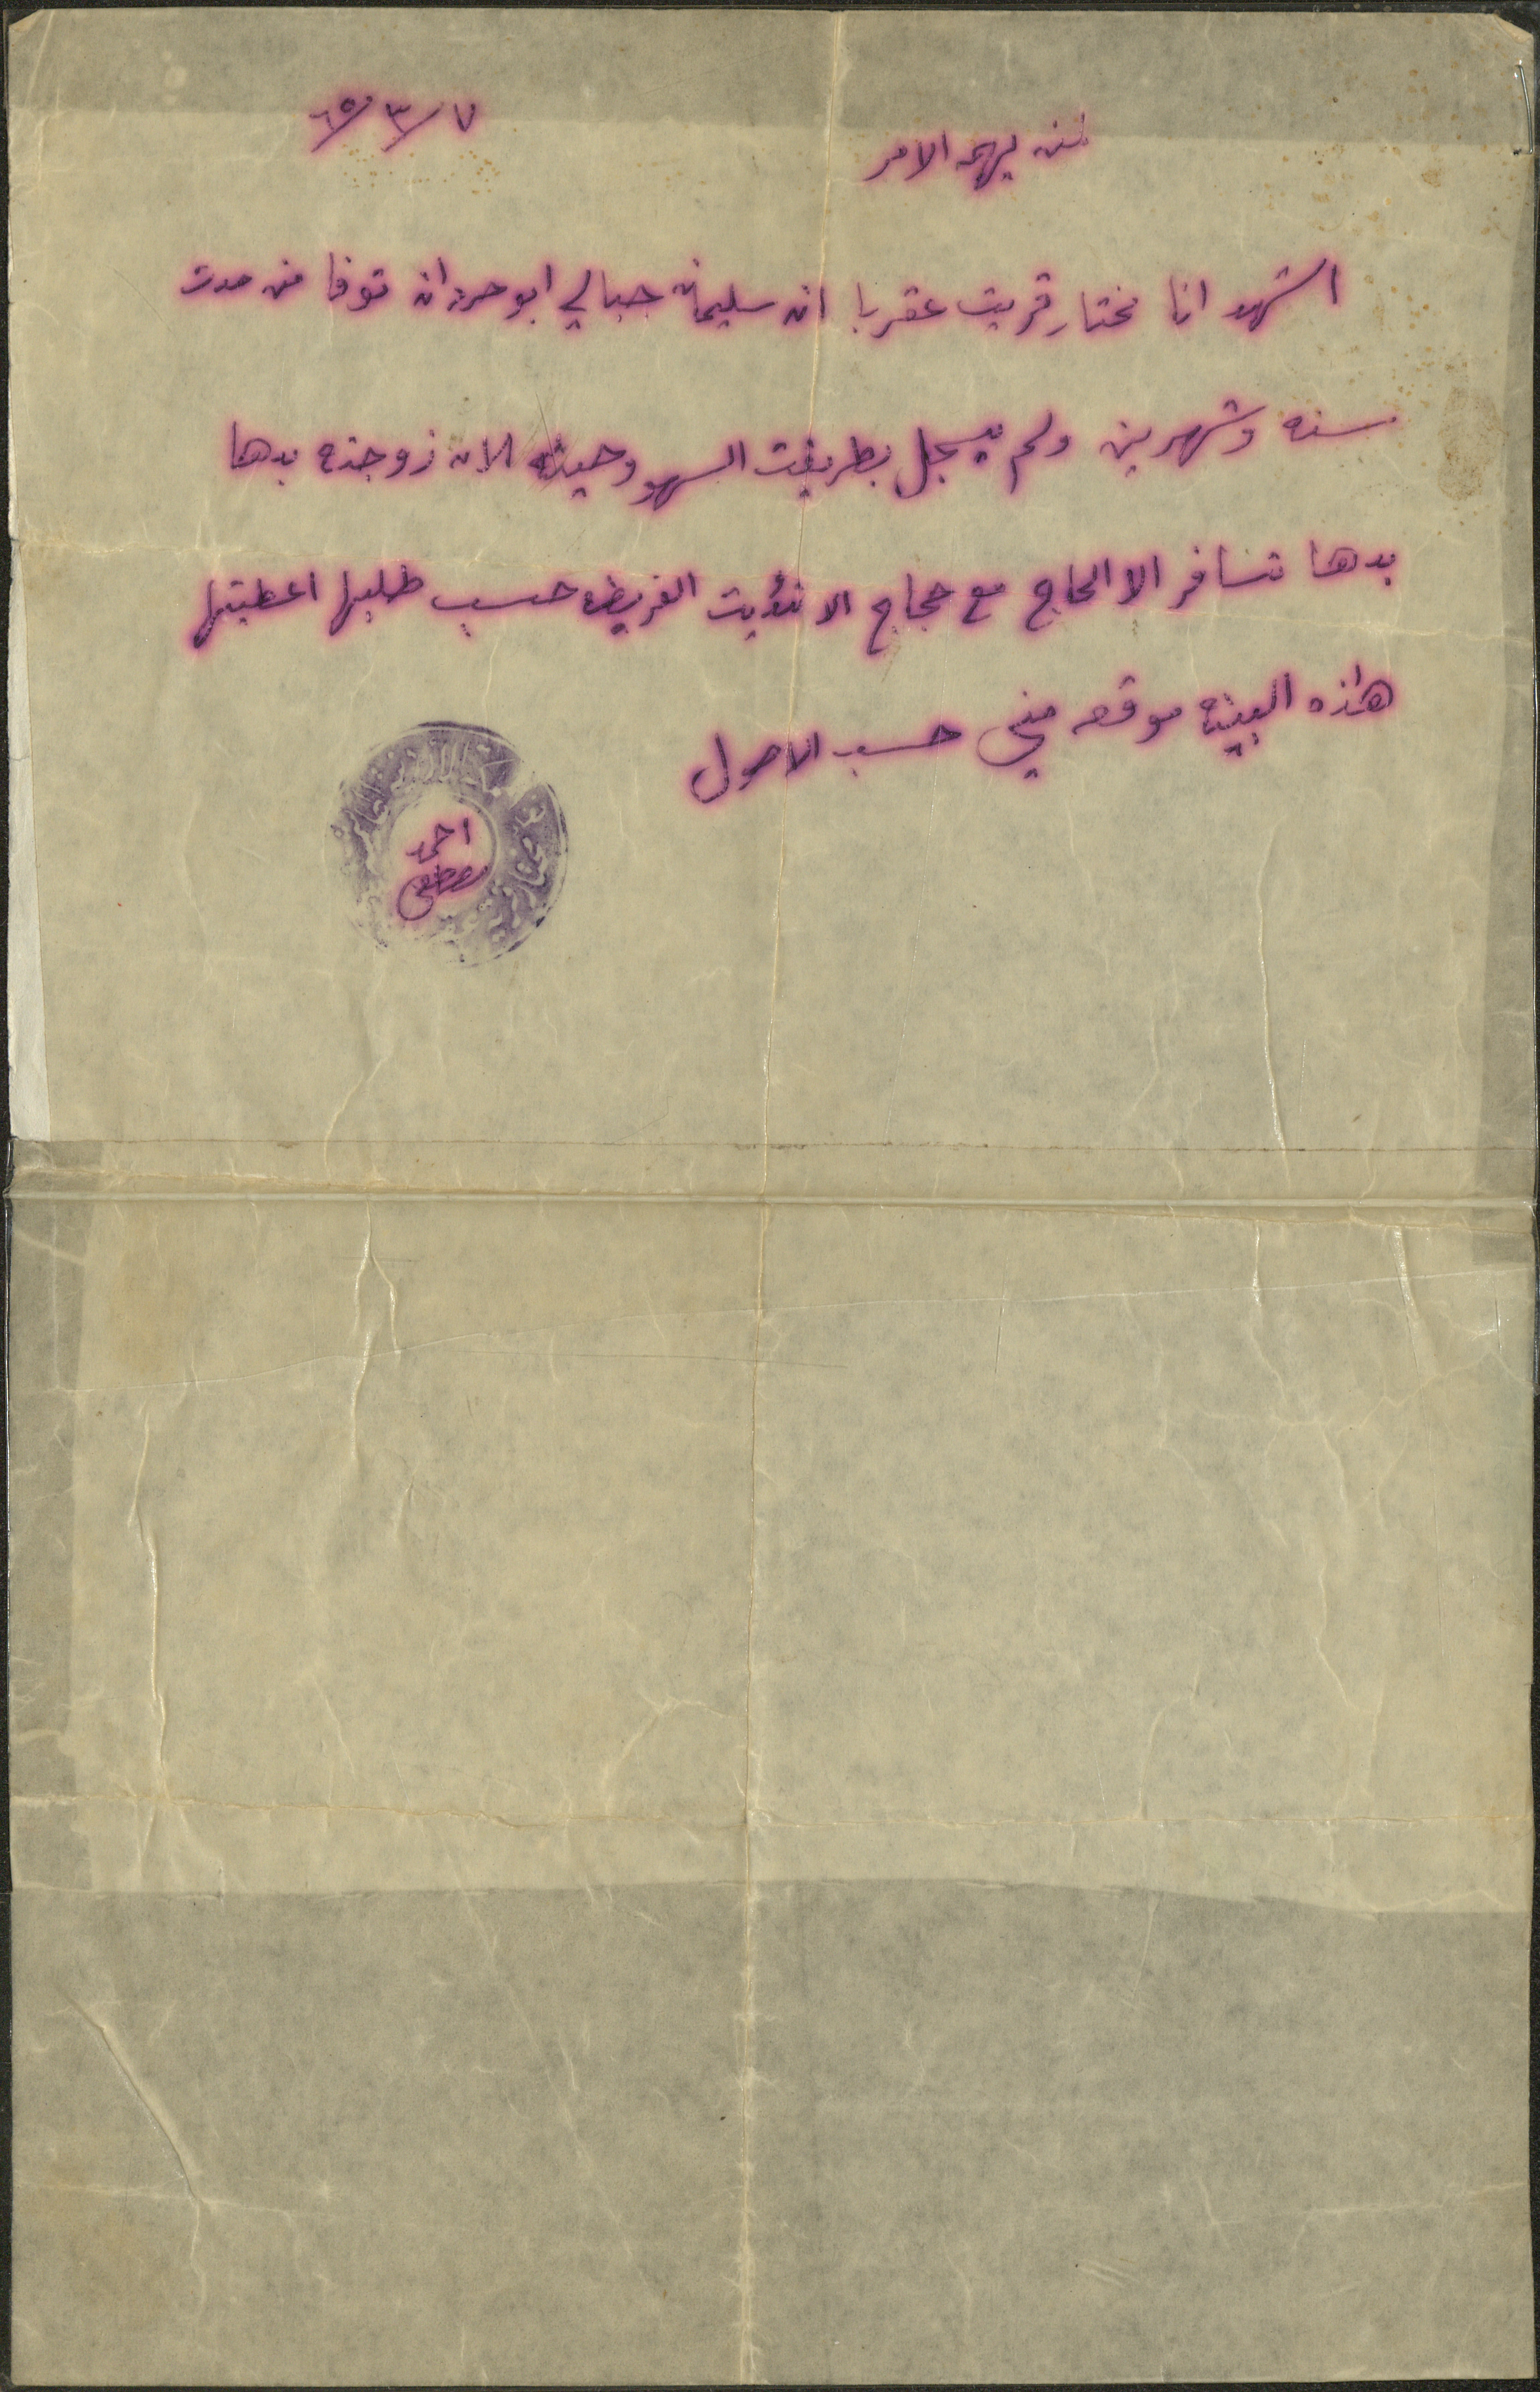 ٦٥/٣/٧
لمن يهمه الامر
اشهد انا مختار قريت عقربا ان سليمان جبالي ابو حردان توفا من مدت
سنه وشهرين ولم يسجل بطريقت السهو وحيث الان زوجته بدها
بدها تسافر الا الحاج مع حجاج الا تؤديت الفريضه حسب طلبها اعطيتها
هاذه البينه موقعه مني حسب الاصول
احمد
مصطفى